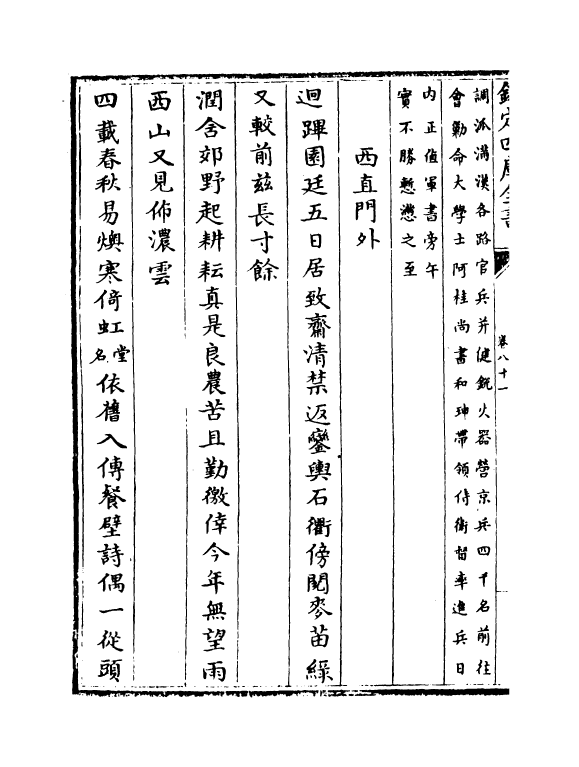 欽定四庫全書
卷八十一
調派滿漢各路官兵并健銳火器營京兵四千名前往
會勦命大學士阿桂尚書和珅帶領侍衛督率進兵日
內正值軍書旁午
實不勝慙懣之至
西直門外
迴蹕園廷五日居致齋清禁返鑾輿石衢傍閱麥苗綠
又較前兹長寸餘
潤含郊野起耕耘真是良農苦且勤徼倖今年無望雨
西山又見佈濃雲
四載春秋易燠寒倚虹堂名依舊入傳餐壁詩偶一從頭